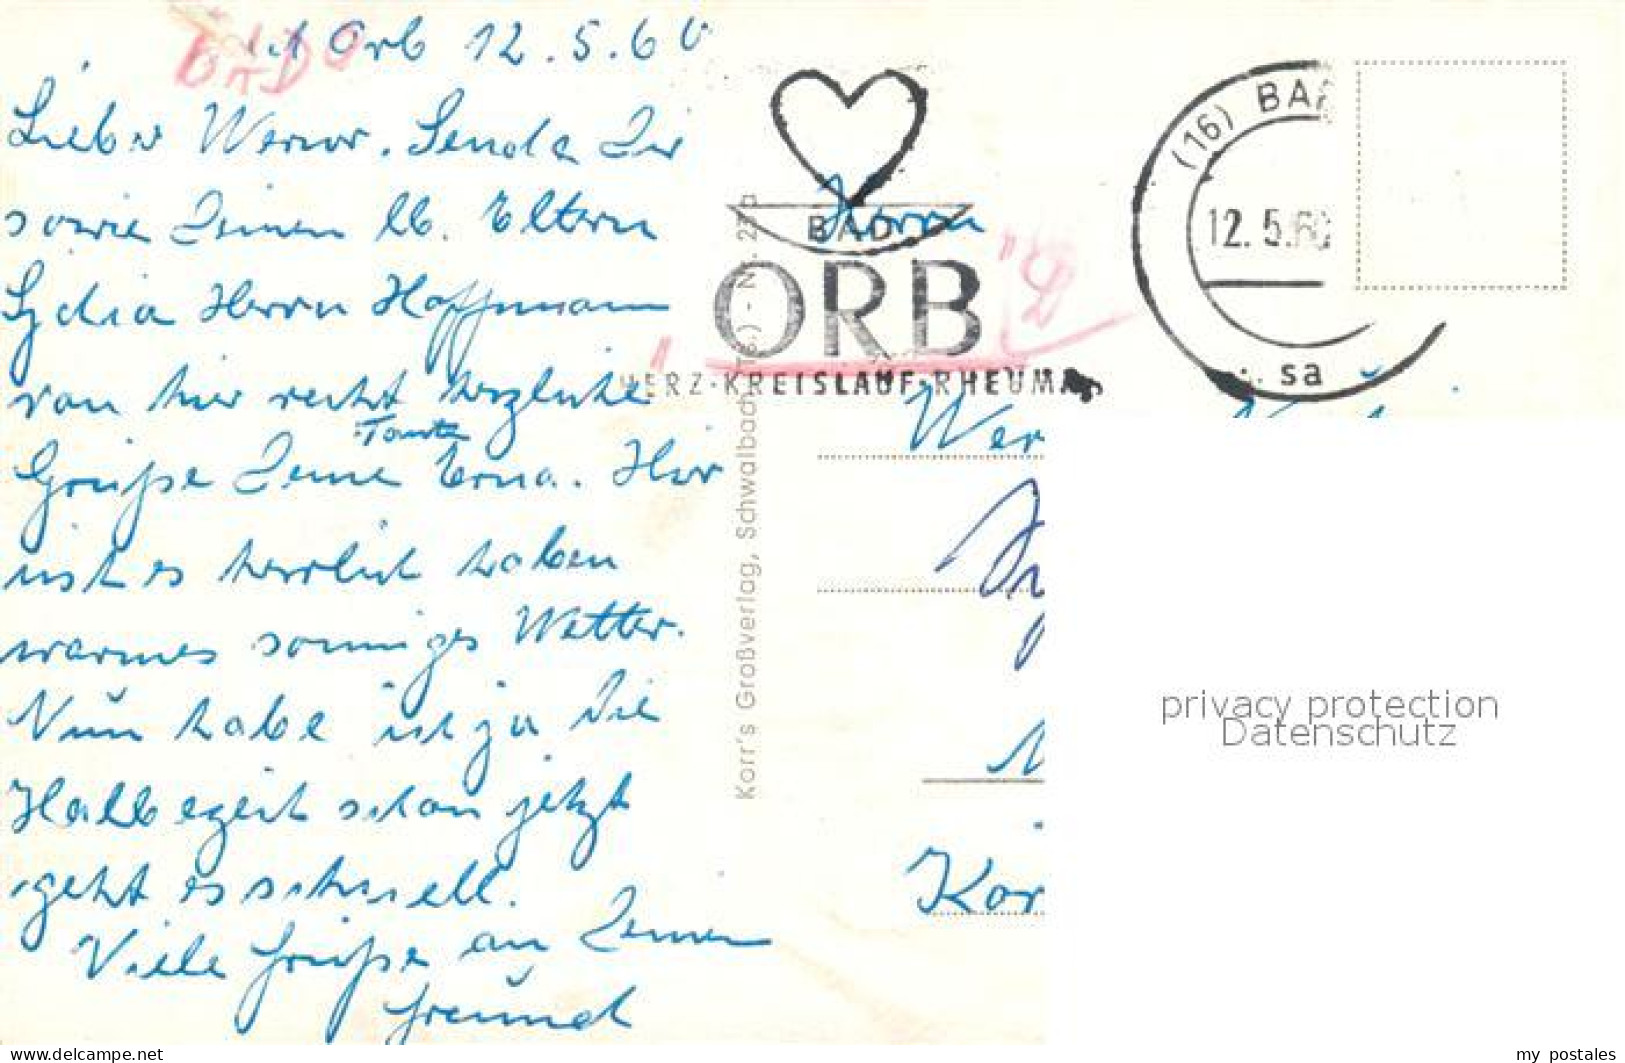 Bad Orb 12.5.60
Lieber Werner. Sende Dir
sowie Deinen lb. Eltern
Lydia Herrn Hoffmann
von hier recht herzliche
Tante
Grüße Deine Erna. Hier
ist es herrlich haben
warmes sonniges Wetter.
Nun habe ich ja die
Halbezeit schon jetzt
geht es schnell.
Viele Grüße an Deinen
Freund
BAD
ORB
HERZ-KREISLAUF-RHEUMA
(16) BAD
12.5.60
sa
Korr's Großverlag, Schwalbach
Herrn
Wer
Kor
privacy protection
Datenschutz
www.delcampe.net
my_postales